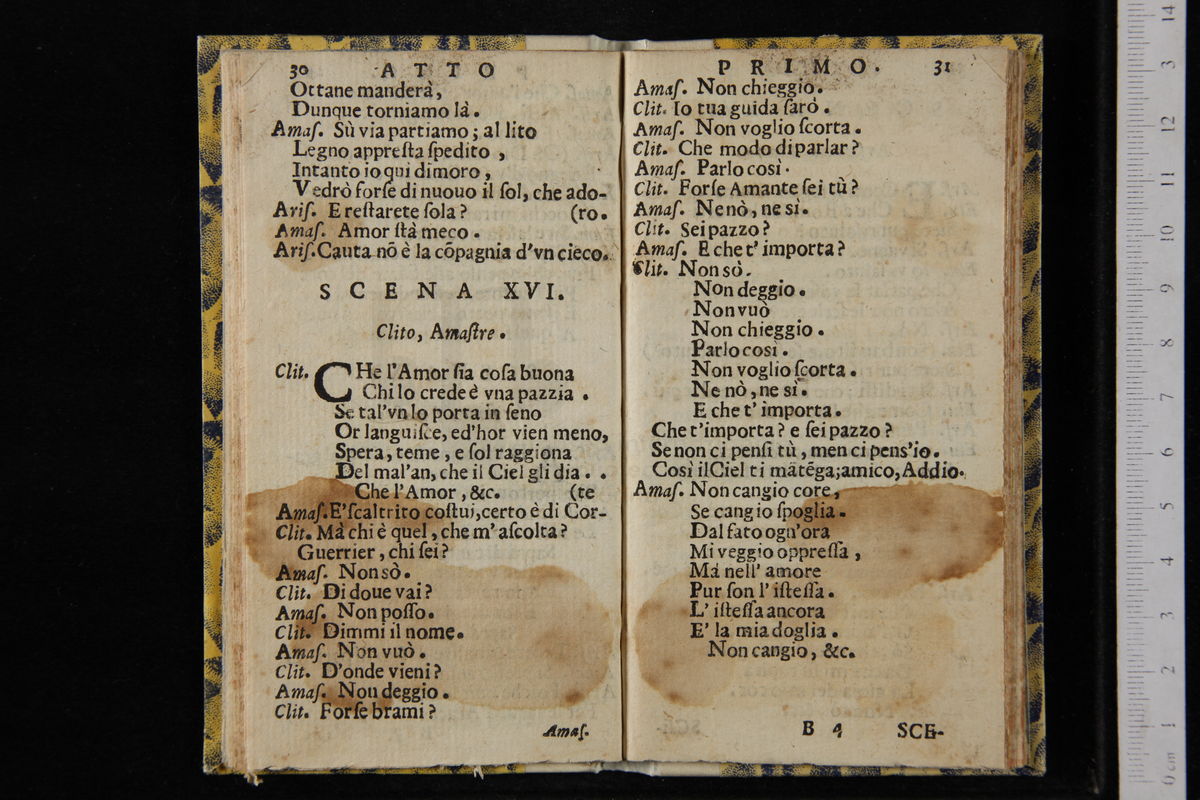 30 ATTO
Ottane manderà,
Dunque torniamo là.
Amaſ. Sù via partiamo; al lito
Legno appreſta ſpedito,
Intanto io qui dimoro,
Vedrò forſe di nuouo il ſol, che ado-
Ariſ. E reſtarete ſola? (ro.
Amaſ. Amor ſtà meco.
Ariſ. Cauta nõ è la cõpagnia d'vn cieco.
SCENA XVI.
Clito, Amaſtre.
Clit. CHe l'Amor ſia coſa buona
Chi lo crede è vna pazzia.
Se tal'vn lo porta in ſeno
Or languiſce, ed'hor vien meno,
Spera, teme, e ſol raggiona
Del mal'an, che il Ciel gli dia. .
Che l'Amor, &c. (te
Amaſ. E'ſcaltrito coſtui, certo è di Cor-
Clit. Mà chi è quel, che m'aſcolta?
Guerrier, chi ſei?
Amaſ. Non sò.
Clit. Di doue vai?
Amaſ. Non poſſo.
Clit. Dimmi il nome.
Amaſ. Non vuò.
Clit. D'onde vieni?
Amaſ. Nou deggio.
Clit. Forſe brami?
Amaſ.
PRIMO. 31
Amaſ. Non chieggio.
Clit. Io tua guida ſarò.
Amaſ. Non voglio ſcorta.
Clit. Che modo di parlar?
Amaſ. Parlo così.
Clit. Forſe Amante ſei tù?
Amaſ. Ne nò, ne sì.
Clit. Sei pazzo?
Amaſ. E che t'importa?
Clit. Non sò.
Non deggio.
Non vuò
Non chieggio.
Parlo così.
Non voglio ſcorta.
Ne nò, ne sì.
E che t'importa.
Che t'importa? e ſei pazzo?
Se non ci penſi tù, men ci pens'io.
Così il Ciel ti mãtẽga; amico, Addio.
Amaſ. Non cangio core,
Se cangio ſpoglia.
Dal fato ogn'ora
Mi veggio oppreſſa,
Mà nell'amore
Pur ſon l'iſteſſa.
L'iſteſſa ancora
E' la mia doglia.
Non cangio, &c.
B 4 SCE-
14
3
12
11
10
9
8
7
6
5
4
3
2
1
0 cm